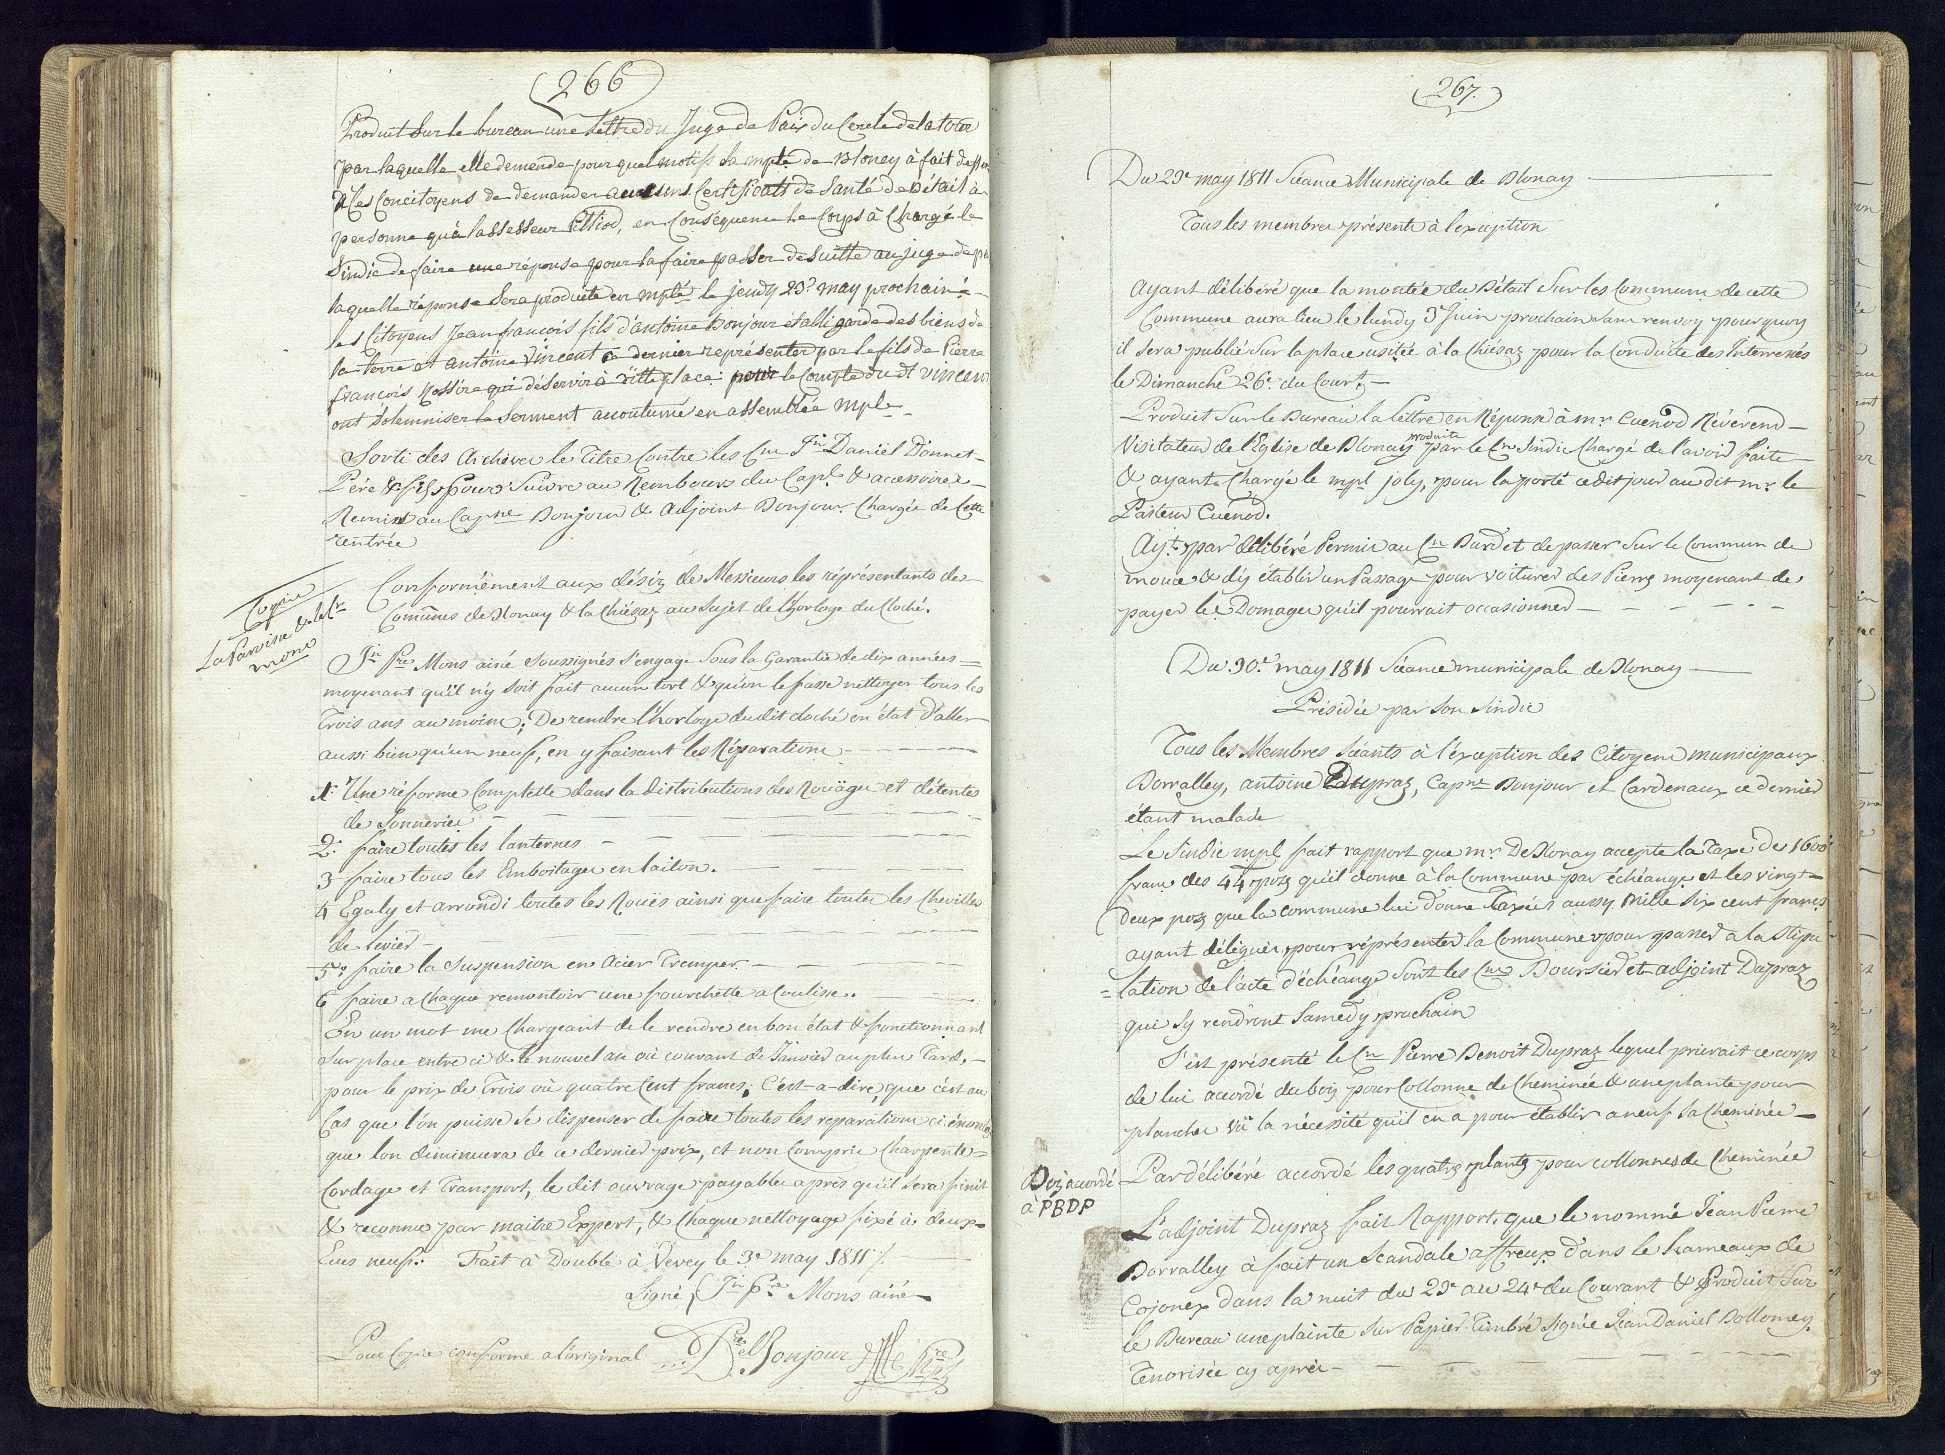 266
Produit Sur le bureau une Lettre du Juge de Paix du Cercle de la tour
par laquelle elle demende pour quel motifs la mplé de Bloney à fait
Ces Concitoyens de demander aucuns Certificats de Santé de Bétail à
personne qu'à lassesseur , en Conséquence Le Corps à Chargé le
Sindic de faire une réponse pour la faire passer de Suitte au juge de
laquelle réponse Sera produite en mplé le jeudy 23e may prochain &
les Citoyens Jean francois fils d'antoine Bonjour établi garde des biens de
la terre et antoine Vincent ce dernier représenter par le fils de Pierre
françois qui déservir à ditte place pour le Compte du dt Vincent
ont Solemniser le Serment accoutumé en assemblée mple
Sorti des Archives le Titre Contre les Cns Jn Daniel Donnet
Père & fils pour Suivre au Rembours du Capl & accessoires
Remist au Capne Bonjour & Adjoint Bonjour Chargés de Cette
rentrée
Copie
La Paroisse & le Cn
mons
Conformément aux désirs de Messieurs les réprésentants des
Comûnes de Blonay & la Chiésaz au Sujet de l'horloge du Cloché.
Jn Pre Mons ainé Soussignés s'engage Sous la Garantie de dix années =
moyenant qu'il n'y Soit fait aucun tort & qu'on le fasse nettoyer tous les
Trois ans au moins; De rendre l'horloge dudit cloché en état d'aller
aussi bien qu'un neuf, en y faisant les Réparations
1° Une réforme Complette dans la distributions des Roüages et détentes
de Sonneries
2° faire toutes les lanternes
3 faire tous les Emboitages en laiton.
4 Egaly et arrondi toutes les Rouës ainsi que faire toutes les Chevilles
de levier
5° faire la Suspension en Acier Tremper.
6 faire a Chaque remontoir une fourchette a Coulisse.
En un mot me Chargeant de le rendre en bon état & fonctionnant
Sur place entre ci & le nouvel an où courant de Janvier au plus Tard,
pour le prix de Trois où quatre Cent francs; C'est-a-dire, que c'est au
Cas que l'on puisse Se dispenser de faire toutes les reparations ci énoncés
que l'on diminuera de ce dernier prix, et non Compris Charpente =
Cordage et Transport, le dit ouvrage payable après qu'il Sera finit
& reconnu par maitre Expert, & Chaque nettoyage fixé à deux
Ecus neufs. Fait à Double à Vevey le 3e may 1811 /.
Signé Jn Pre Mons ainé
Pour Copie conforme a l'original Bonjour
267.
Du 23e may 1811 Séance Municipale de Blonay
Tous les membres présents à l'exception
Ayant délibéré que la montée du Bétail Sur les Communs de cette
Commune aura lieu le lundy 3e Juin prochain Sans renvoy pourquoy
il Sera publié Sur la place usitée à la Chiésaz pour la Conduite des Interressés
le Dimanche 26e du Court.
Produit Sur le Bureau la Lettre en Réponse à mr Cuenod Révérend
Visitateur de l'Eglise de Blonay produite par le Cn Sindic Chargé de l'avoir faite
& ayant Chargé le mpl joly, pour la porté cedit jour au dit mr le
Pasteur Cuenod.
Ayt par délibéré Permis au Cn Burdet de passer Sur le Commun de
mouce & d'is établir un Passage pour voiturer des Pierres moyenant de
payer les Domages qu'il pourrait occasionner
Du 30e may 1811 Séance municipale de Blonay
Présidée par Son Sindic
Tous les Membres Séants à l'éxception des Citoyens municipaux
Borralley, antoine Dupraz, Capne Bonjour et Cardenaux ce dernier
étant malade
Le Sindic mpl fait rapport que mr DeBlonay accepte la Taxe des 1600
francs des 44 poz qu'il donne à la Commune par échéange et les vingt
deux poz que la commune lui donne Taxés aussy Mille Six cent francs
ayant délégués pour réprésenter la Commune & pour passer a la Stipu
= lation de l'acte d'échéange Sont les Cns Boursier et adjoint Dupraz
qui Sy rendront Samedy prochain
S'est présenté le Cn Pierre Benoit Dupraz lequel prierait ce corps
de lui accordé du bois pour Collonne de Cheminée & une plante pour
planches vû la nécessité qu'il en a pour établir a neuf Sa Cheminée
Boiz accordé
à PBDP
Par délibéré accordé les quatre plantes pour collonnes de Cheminée
L'adjoint Dupraz fait Rapport, que le nommé Jean Pierre
Borralley à fait un Scandale affreux dans le hameaux de
Cojonex dans la nuit du 23e au 24e du Courant & Produit Sur
le Bureau une plainte Sur Papier Timbré Signée Jean Daniel Dollomey.
Tenorisée cy après